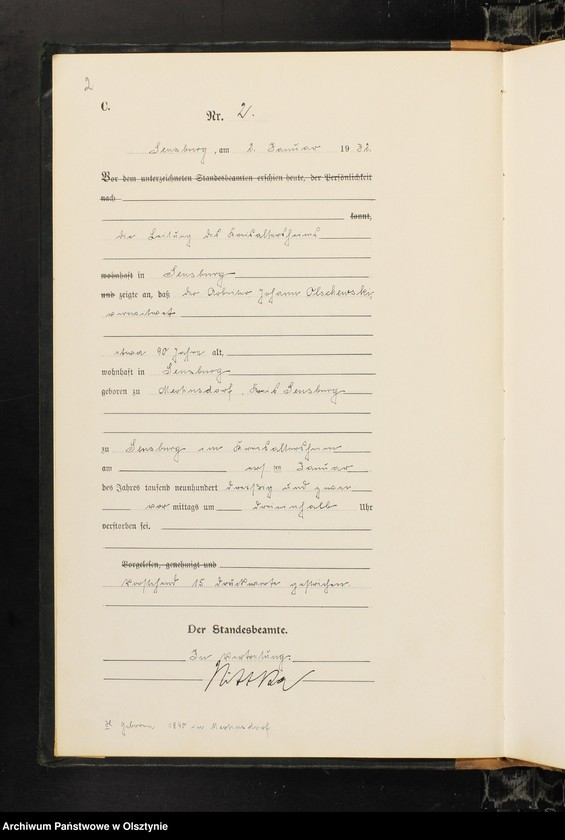 2
C.
Nr. 2.
Sensburg, am 2. Januar 1932.
Vor dem unterzeichneten Standesbeamten erschien heute, der Persönlichkeit
nach
kannt,
die Leitung des Kreisaltersheims
wohnhaft in Sensburg
und zeigte an, daß der Arbeiter Johann Olschewski,
verwitwet
etwa 90 Jahre alt,
wohnhaft in Sensburg
geboren zu Kreis Sensburg
zu Sensburg im Kreisaltersheim
am ersten Januar
des Jahres tausend neunhundert dreißig und zwei
vor mittags um Uhr
verstorben sei.
Vorgelesen, genehmigt und
Vorstehend 15 Druckworte gestrichen.
Der Standesbeamte.
In Vertretung.
geboren in
Archiwum Państwowe w Olsztynie